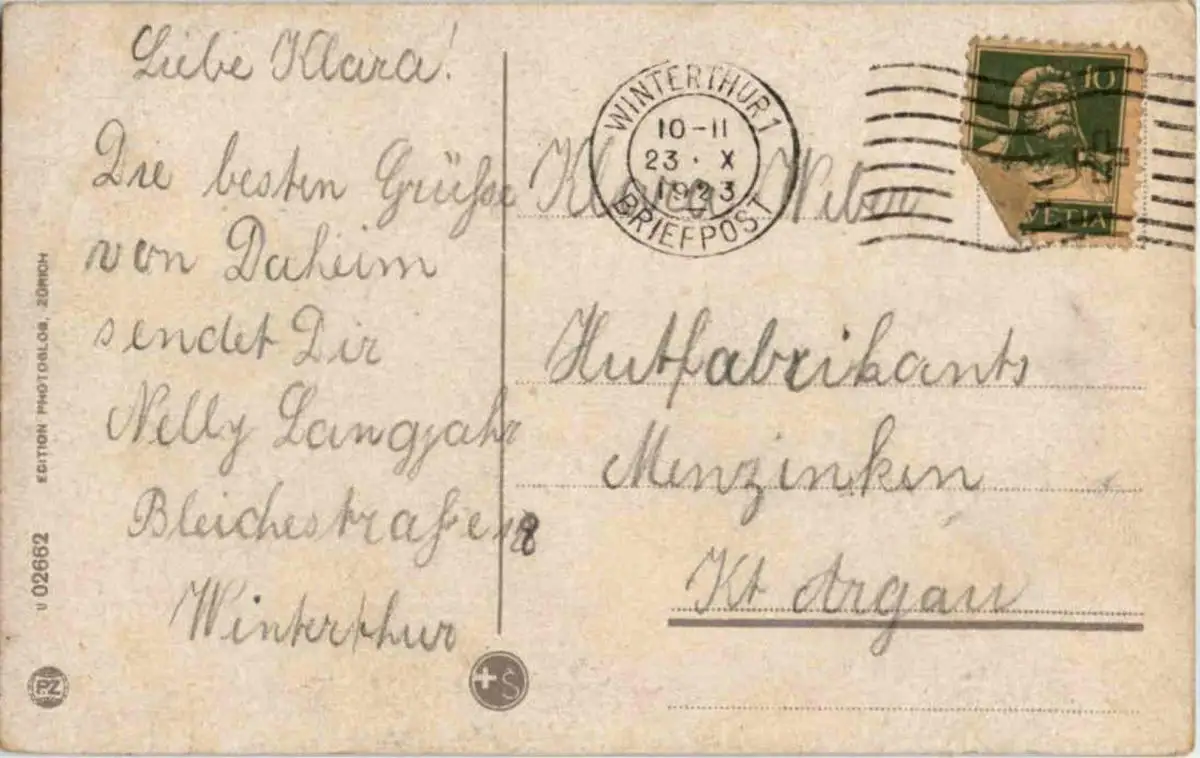 Liebe Klara!
Die besten Grüsse
von Daheim
sendet Dir
Nelly Langjahr
Bleichestraße 18
Winterthur
WINTERTHUR 1
10-11
23. X
1923
BRIEFPOST
10
HELVETIA
Klara Weber
Hutfabrikants
Menzinken
Kt Argau
EDITION PHOTOGLOB, ZÜRICH
U 02662
PZ
+ S